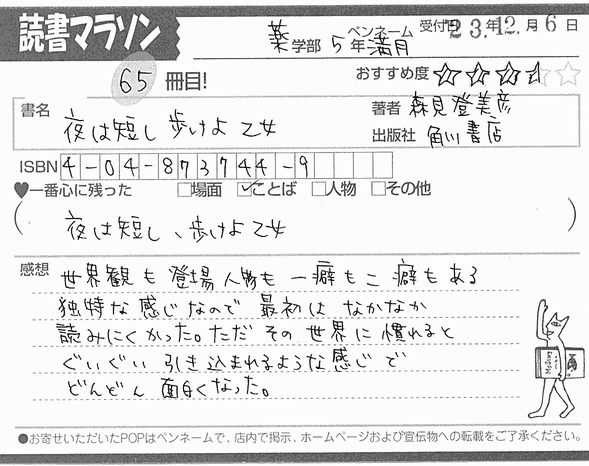 読書マラソン
薬学部 5年 ペンネーム 満月 受付 23年12.月6日
65冊目! おすすめ度 ☆☆☆☆☆
書名 夜は短し 歩けよ 乙女
著者 森見登美彦
出版社 角川書店
ISBN 4-04-873744-9
♥一番心に残った □場面 ☑ことば □人物 □その他
(夜は短し、歩けよ乙女)
感想 世界観も登場人物も一癖もニ癖もある
独特な感じなので最初は なかなか
読みにくかった。ただ その世界に慣れると
ぐいぐい引き込まれるような感じで
どんどん面白くなった。
●お寄せいただいたPOPはペンネームで、店内で掲示、ホームページおよび宣伝物への転載をご了承ください。